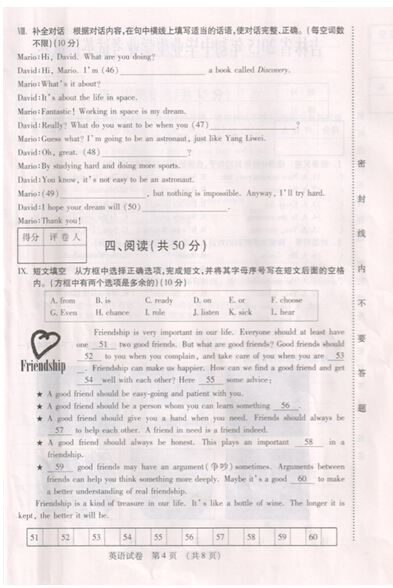 Ⅷ. 补全对话 根据对话内容,在句中横线上填写适当的话语,使对话完整、正确。(每空词数
不限)(10分)
Mario:Hi, David. What are you doing?
David:Hi, Mario. I'm (46)____________________ a book called Discovery.
Mario:What's it about?
David:It's about the life in space.
Mario:Fantastic! Working in space is my dream.
David:Really? What do you want to be when you (47)____________________?
Mario:Guess what? I'm going to be an astronaut, just like Yang Liwei.
David:Oh, great. (48)____________________?
Mario:By studying hard and doing more sports.
David:You know, it's not easy to be an astronaut.
Mario:(49)____________________, but nothing is impossible. Anyway, I'll try hard.
David:I hope your dream will (50)____________________.
Mario:Thank you!
得分 评卷人
四、阅读(共50分)
Ⅸ. 短文填空 从方框中选择正确选项,完成短文,并将其字母序号写在短文后面的空格
内。(方框中有两个选项是多余的)(10分)
A. from B. is C. ready D. on E. or F. choose
G. Even H. chance I. role J. listen K. sick L. hear
Friendship is very important in our life. Everyone should at least have
one 51 two good friends. But what are good friends? Good friends should
52 to you when you complain, and take care of you when you are 53
. Friendship can make us happier. How can we find a good friend and get
54 well with each other? Here 55 some advice:
Friendship
★ A good friend should be easy-going and patient with you.
★ A good friend should be a person whom you can learn something 56 .
★ A good friend should give you a hand when you need. Friends should always be
57 to help each other. A friend in need is a friend indeed.
★ A good friend should always be honest. This plays an important 58 in a
friendship.
★ 59 good friends may have an argument(争吵)sometimes. Arguments between
friends can help you think something more deeply. Maybe it's a good 60 to make
a better understanding of real friendship.
Friendship is a kind of treasure in our life. It's like a bottle of wine. The longer it is
kept, the better it will be.
51 52 53 54 55 56 57 58 59 60
英语试卷 第4页 (共8页)
密封线内不要答题